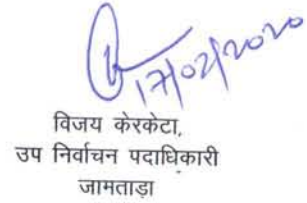 17/02/2020
विजय केरकेटा,
उप निर्वाचन पदाधिकारी
जामताड़ा